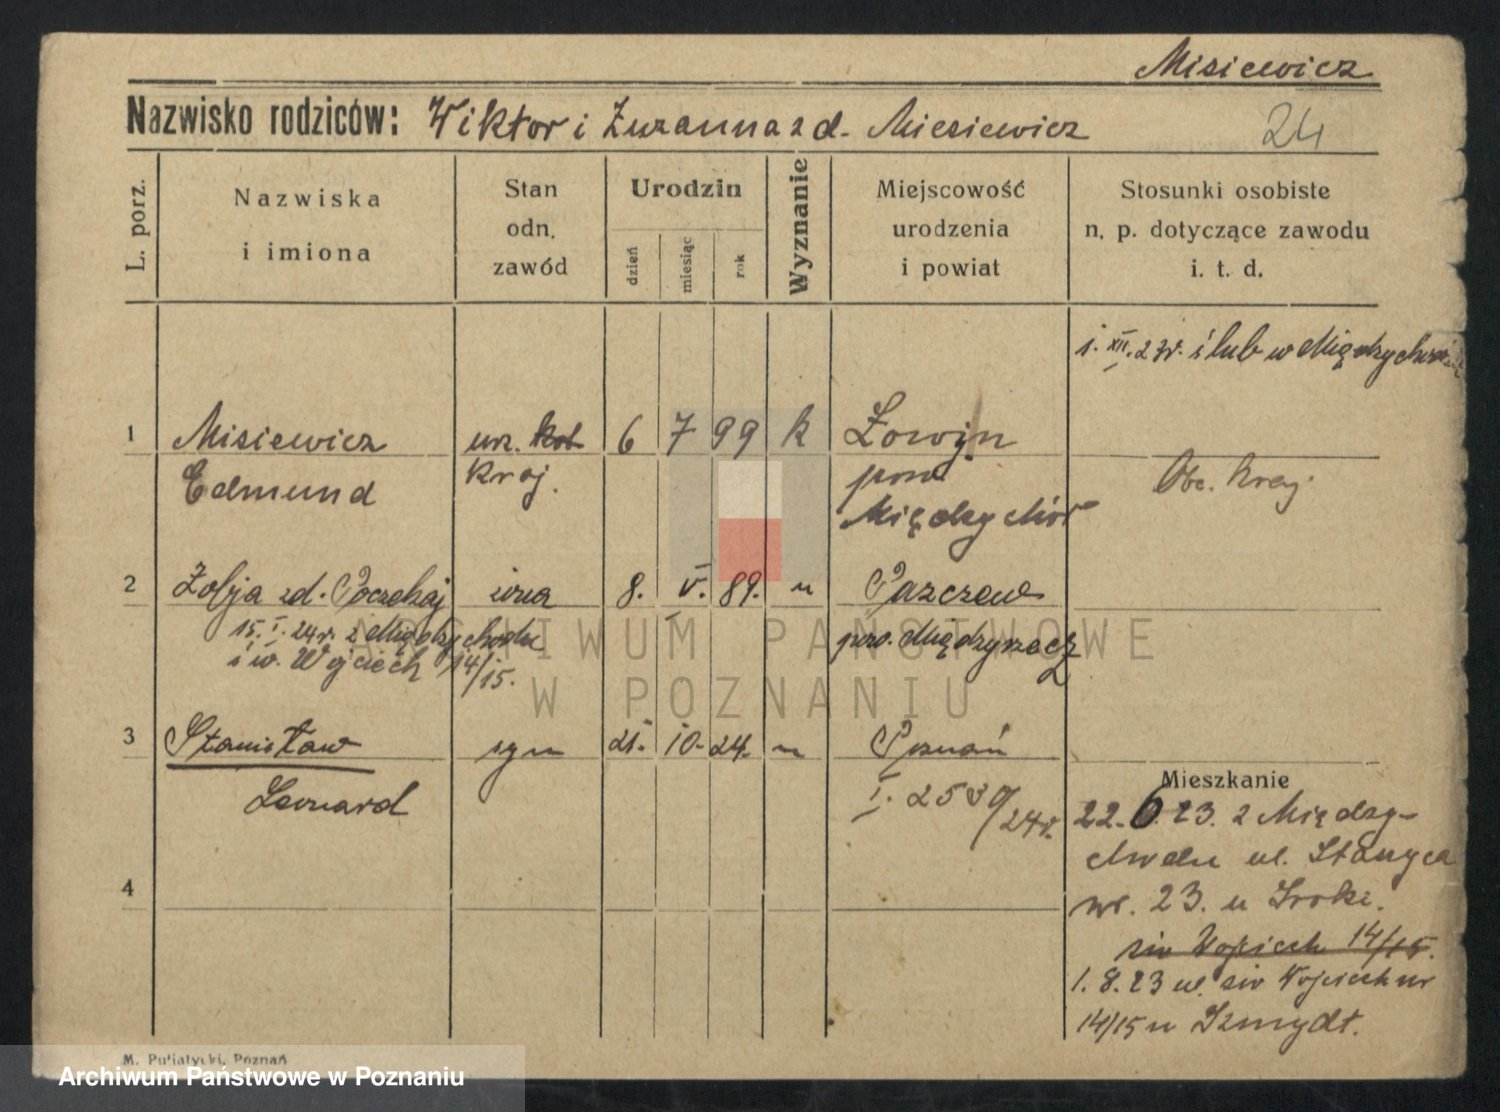 Misiewicz
Nazwisko rodziców: Wiktor i Zuzanna z d. Miesiewicz
24
L. porz.
Nazwiska
i imiona
Stan
odn.
zawód
Urodzin
dzień
miesiąc
rok
Wyznanie
Miejscowość
urodzenia
i powiat
Stosunki osobiste
n. p. dotyczące zawodu
i. t. d.
1. XII. 23r. ślub w Międzychodzie
1 Misiewicz urz. kol 6 7 99 k Łowyn
Edmund kraj. pow Międzychód
Obc. kraj.
2 Zofja zd. Poczekaj żona 8. V. 89. n Pszczew
15. I. 24r. z Międzychodu pow. Międzyrzecz
św. Wojciech 14/15.
3 Stanisław syn 21. 10. 24. n Poznań
Leonard I. 2539/24r.
4
Mieszkanie
22.6.23. z Między-
chodu ul.
nr. 23. u
św Wojciech 14/15.
1.8.23 ul. św Wojciech nr
14/15 u Szmydt.
M. Putiatycki, Poznań
ARCHIWUM PAŃSTWOWE
W POZNANIU
Archiwum Państwowe w Poznaniu